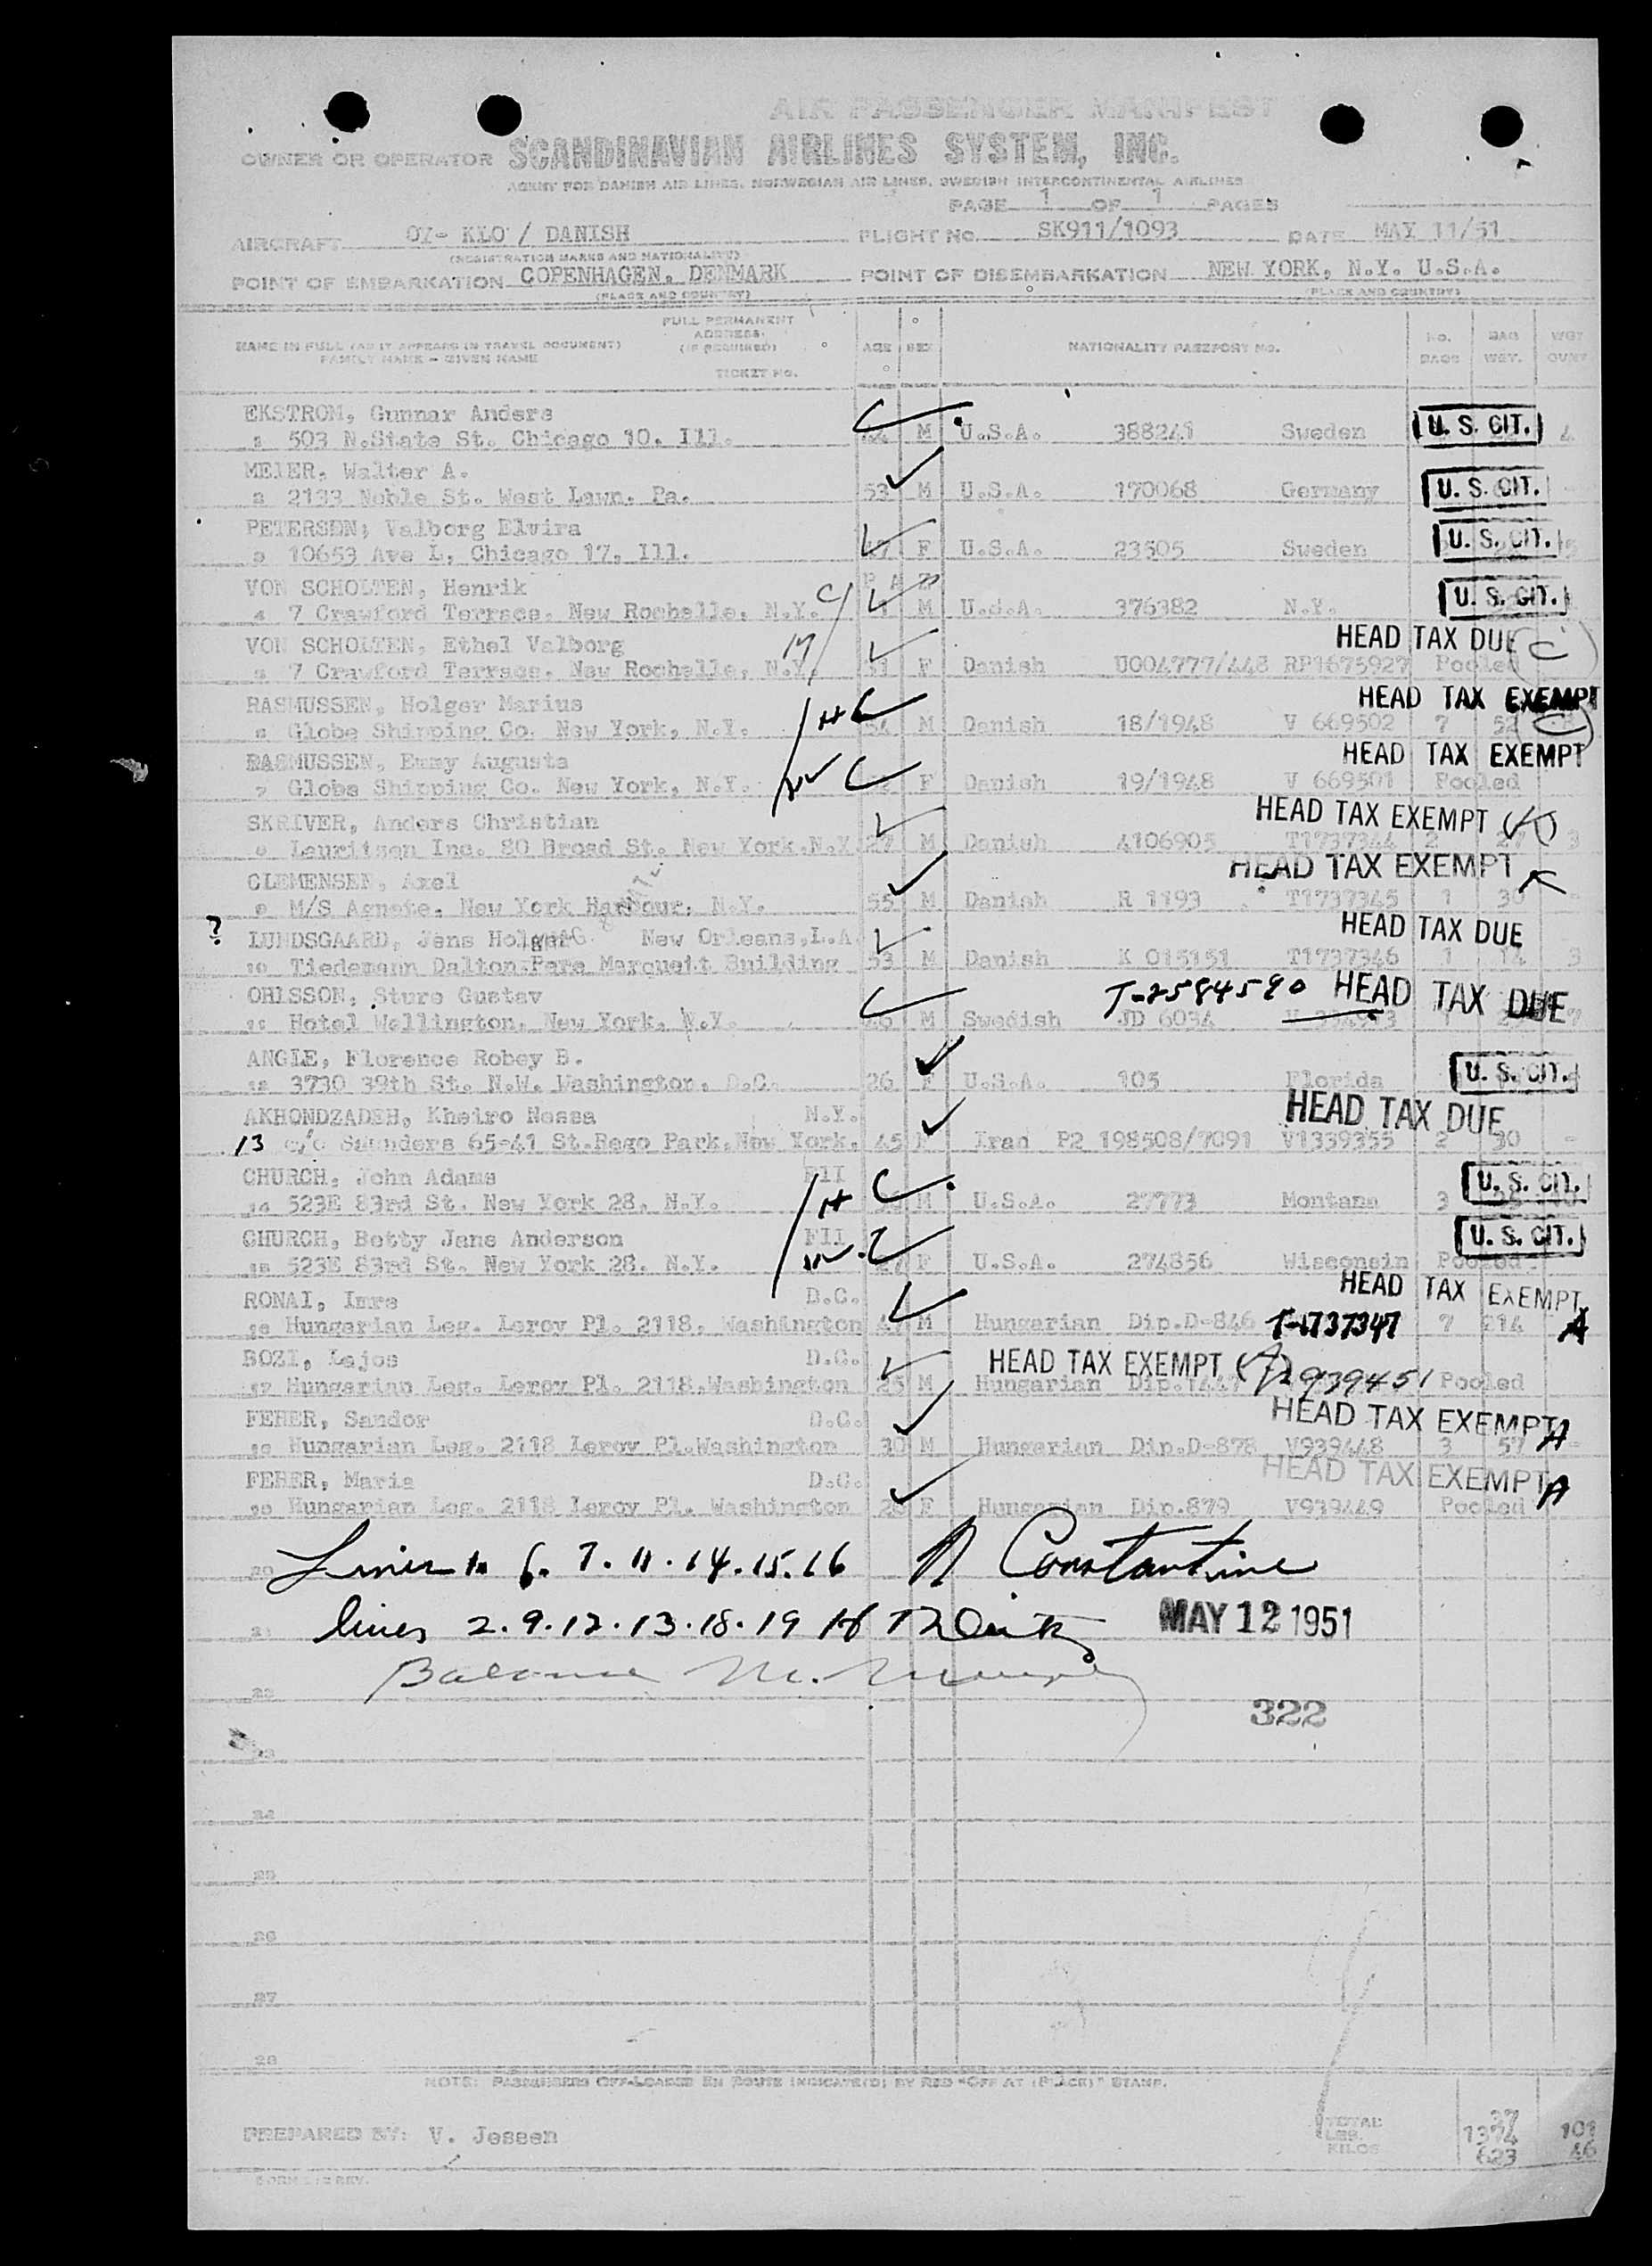 AIR PASSENGER MANIFEST
OWNER OR OPERATOR SCANDINAVIAN AIRLINES SYSTEM, INC.
AGENT FOR DANISH AIR LINES, NORWEGIAN AIR LINES, SWEDISH INTERCONTINENTAL AIRLINES
PAGE 1 OF 1 PAGES
AIRCRAFT OY- KLO / DANISH FLIGHT No. SK911/1093 DATE MAY 11/51
(REGISTRATION MARKS AND NATIONALITY)
POINT OF EMBARKATION COPENHAGEN, DENMARK POINT OF DISEMBARKATION NEW YORK, N.Y. U.S.A.
(PLACE AND COUNTRY) (PLACE AND COUNTRY)
NAME IN FULL (AS IT APPEARS IN TRAVEL DOCUMENT) FAMILY NAME - GIVEN NAME
FULL PERMANENT ADDRESS (IF REQUIRED) TICKET No.
AGE SEX NATIONALITY PASSPORT NO. NO. BAGS BAG WGT.
EKSTROM, Gunnar Anders
1 503 N.State St. Chicago 10. Ill. M U.S.A. 388241 Sweden U. S. CIT. 4
MEIER, Walter A.
2 2133 Noble St. West Lawn. Pa. 53 M U.S.A. 170068 Germany U. S. CIT. -
PETERSEN, Valborg Elvira
3 10653 Ave L, Chicago 17, Ill. F U.S.A. 23505 Sweden U. S. CIT. 5
VON SCHOLTEN, Henrik
4 7 Crawford Terrace. New Rochelle, N.Y. M U.S.A. 376382 N.Y. U. S. CIT.
VON SCHOLTEN, Ethel Valborg HEAD TAX DUE C
5 7 Crawford Terrace. New Rochelle, N.Y. F Danish U004777/448 RP1675927 Pooled
RASMUSSEN, Holger Marius H C HEAD TAX EXEMPT
6 Globe Shipping Co. New York, N.Y. 54 M Danish 18/1948 V 669502 7 52 C
RASMUSSEN, Emmy Augusta W C HEAD TAX EXEMPT
7 Globe Shipping Co. New York, N.Y. F Danish 19/1948 V 669501 Pooled
SKRIVER, Anders Christian HEAD TAX EXEMPT
8 Lauritsen Inc. 80 Broad St. New York.N.Y 27 M Danish 4106905 T1737344 2 27 3
CLEMENSEN, Axel HEAD TAX EXEMPT
9 M/S Agnete. New York Harbour. N.Y. 55 M Danish R 1193 T1737345 1 30 -
? LUNDSGAARD, Jens Holger New Orleans,L.A HEAD TAX DUE
10 Tiedemann Dalton.Pere Marquett Building 53 M Danish K 015151 T1737346 1 14 3
OHLSSON, Sture Gustav T-2584590 HEAD TAX DUE
11 Hotel Wellington. New York. N.Y. M Swedish JD 6034 7
ANGLE, Florence Robey B.
12 3730 39th St. N.W. Washington. D.C. 26 F U.S.A. 105 Florida U. S. CIT.
AKHONDZADEH, Kheiro Nessa N.Y. HEAD TAX DUE
13 c/o Saunders 65-41 St.Rego Park.New York. 45 F Iran P2 198508/7091 V1339355 2 30 -
CHURCH, John Adams FII H C
14 523E 83rd St. New York 28, N.Y. M U.S.A. 27773 Montana 3 U. S. CIT.
CHURCH, Betty Jane Anderson FII W C
15 523E 83rd St. New York 28. N.Y. 27 F U.S.A. 274856 Wisconsin Pooled U. S. CIT.
RONAI, Imre D.C. HEAD TAX EXEMPT
16 Hungarian Leg. Leroy Pl. 2118. Washington M Hungarian Dip.D-846 T-1737347 7 214 A
BOZI, Lajos D.C. HEAD TAX EXEMPT (A)
17 Hungarian Leg. Leroy Pl. 2118.Washington 25 M Hungarian 939451 Pooled
FEHER, Sandor D.C. HEAD TAX EXEMPT A
18 Hungarian Leg. 2118 Leroy Pl.Washington 30 M Hungarian Dip.D-878 V939448 3 57 -
FEHER, Maria D.C. HEAD TAX EXEMPT A
19 Hungarian Leg. 2118 Leroy Pl. Washington 28 F Hungarian Dip.879 V939449 Pooled
20 Lines 1. 6. 7. 11. 14. 15. 16 Constantine
21 lines 2. 9. 12. 13. 18. 19 MAY 12 1951
22 Balance M.
322
23
24
25
26
27
28
NOTE: PASSENGERS OFF-LOADED EN ROUTE INDICATE(D) BY RED "OFF AT (PLACE)" STAMP.
PREPARED BY: V. Jessen
TOTAL 37
LBS. 1374 101
KILOS 623 46